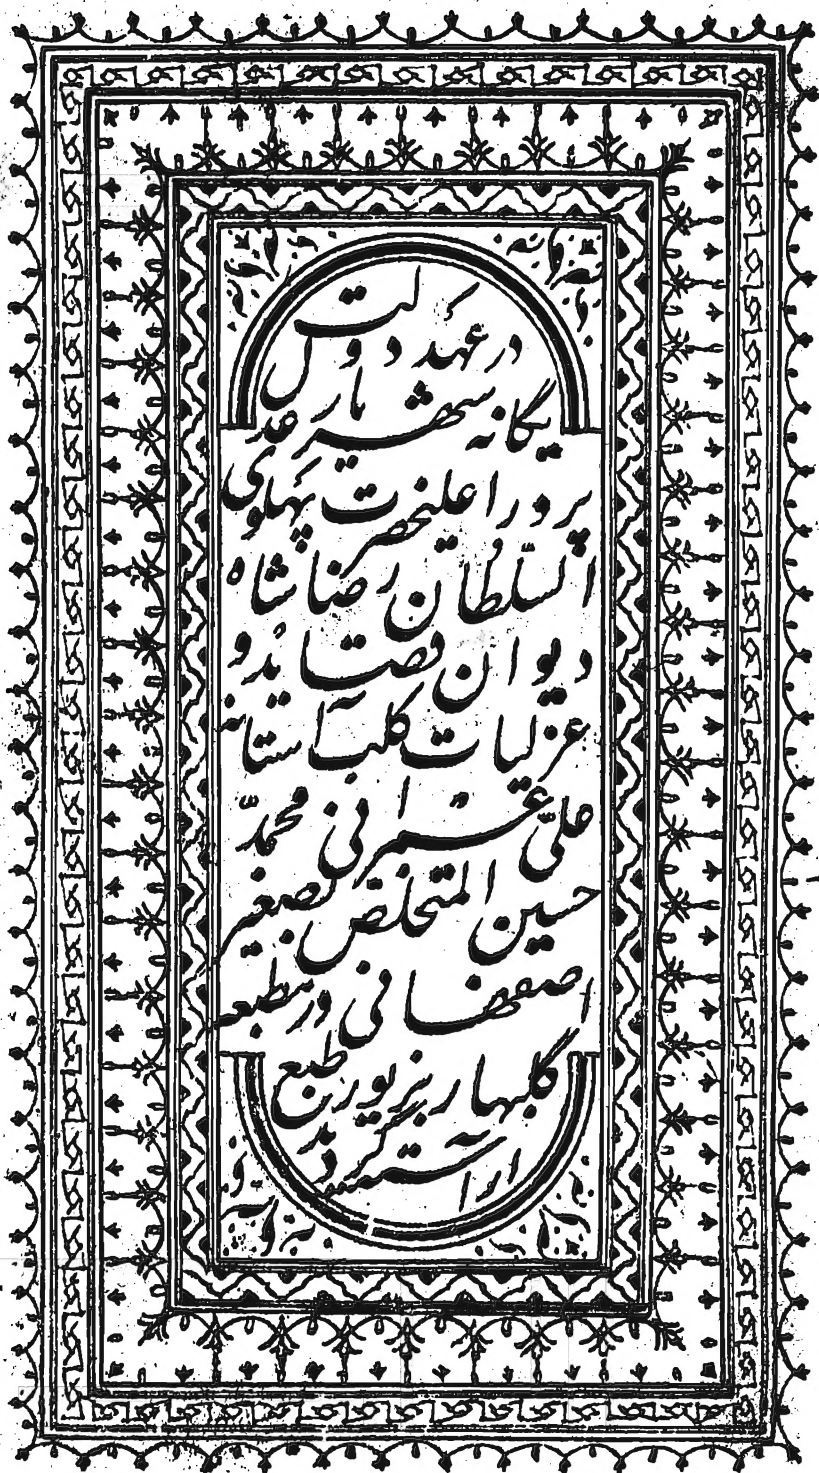 در عهد دولت
یگانه شهریار عدل
پرور اعلیحضرت پهلوی
السلطان رضا شاه
دیوان قصاید و
غزلیات کلب آستانه
علی عمرانی محمد
حسین المتخلص بصغیر
اصفهانی در مطبعه
گلبهار بزیور طبع
آراسته گردید